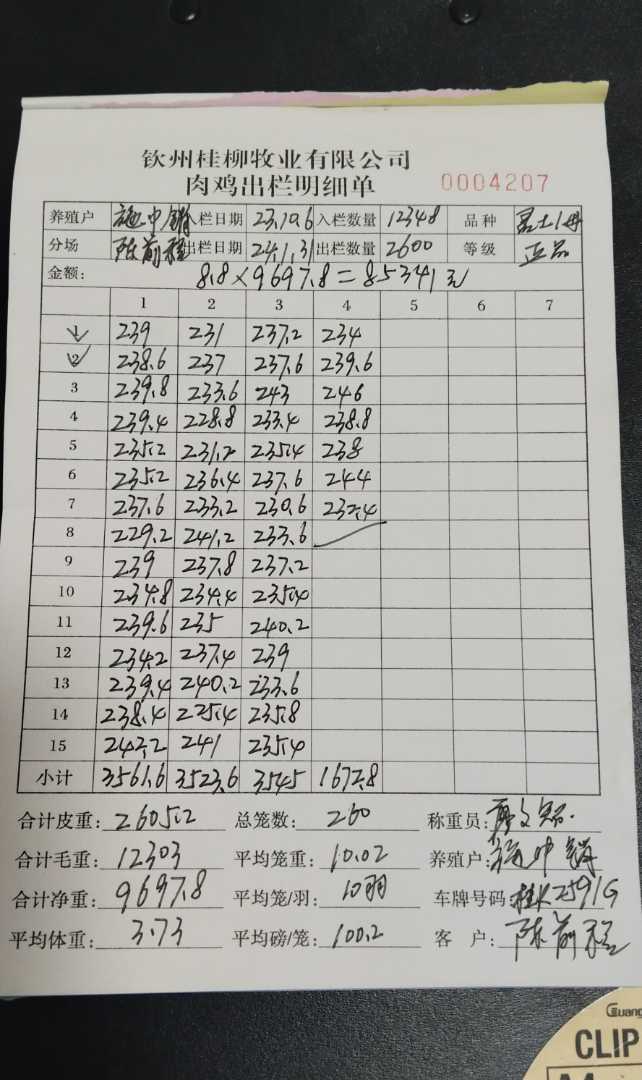 钦州桂柳牧业有限公司
肉鸡出栏明细单 0004207
养殖户 施中锵 入栏日期 23.10.6 入栏数量 12348 品种
分场 陈前程 出栏日期 24.1.31 出栏数量 2600 等级 正品
金额: 8.8×9697.8=85341元
1 2 3 4 5 6 7
1 239 231 237.2 234
2 238.6 237 237.6 239.6
3 239.8 233.6 243 246
4 239.4 228.8 233.4 238.8
5 235.2 231.2 235.4 238
6 235.2 236.4 237.6 244
7 237.6 233.2 230.6 232.4
8 229.2 241.2 233.6
9 239 237.8 237.2
10 234.8 234.4 235.4
11 239.6 235 240.2
12 234.2 237.4 239
13 239.4 240.2 233.6
14 238.4 225.4 235.8
15 242.2 241 235.4
小计 3561.6 3523.6 3545 1672.8
合计皮重: 2605.2 总笼数: 260 称重员:
合计毛重: 12303 平均笼重: 10.02 养殖户:
合计净重: 9697.8 平均笼/羽: 10羽 车牌号码: 桂K2591G
平均体重: 3.73 平均磅/笼: 100.2 客户: 陈前程
Guang
CLIP